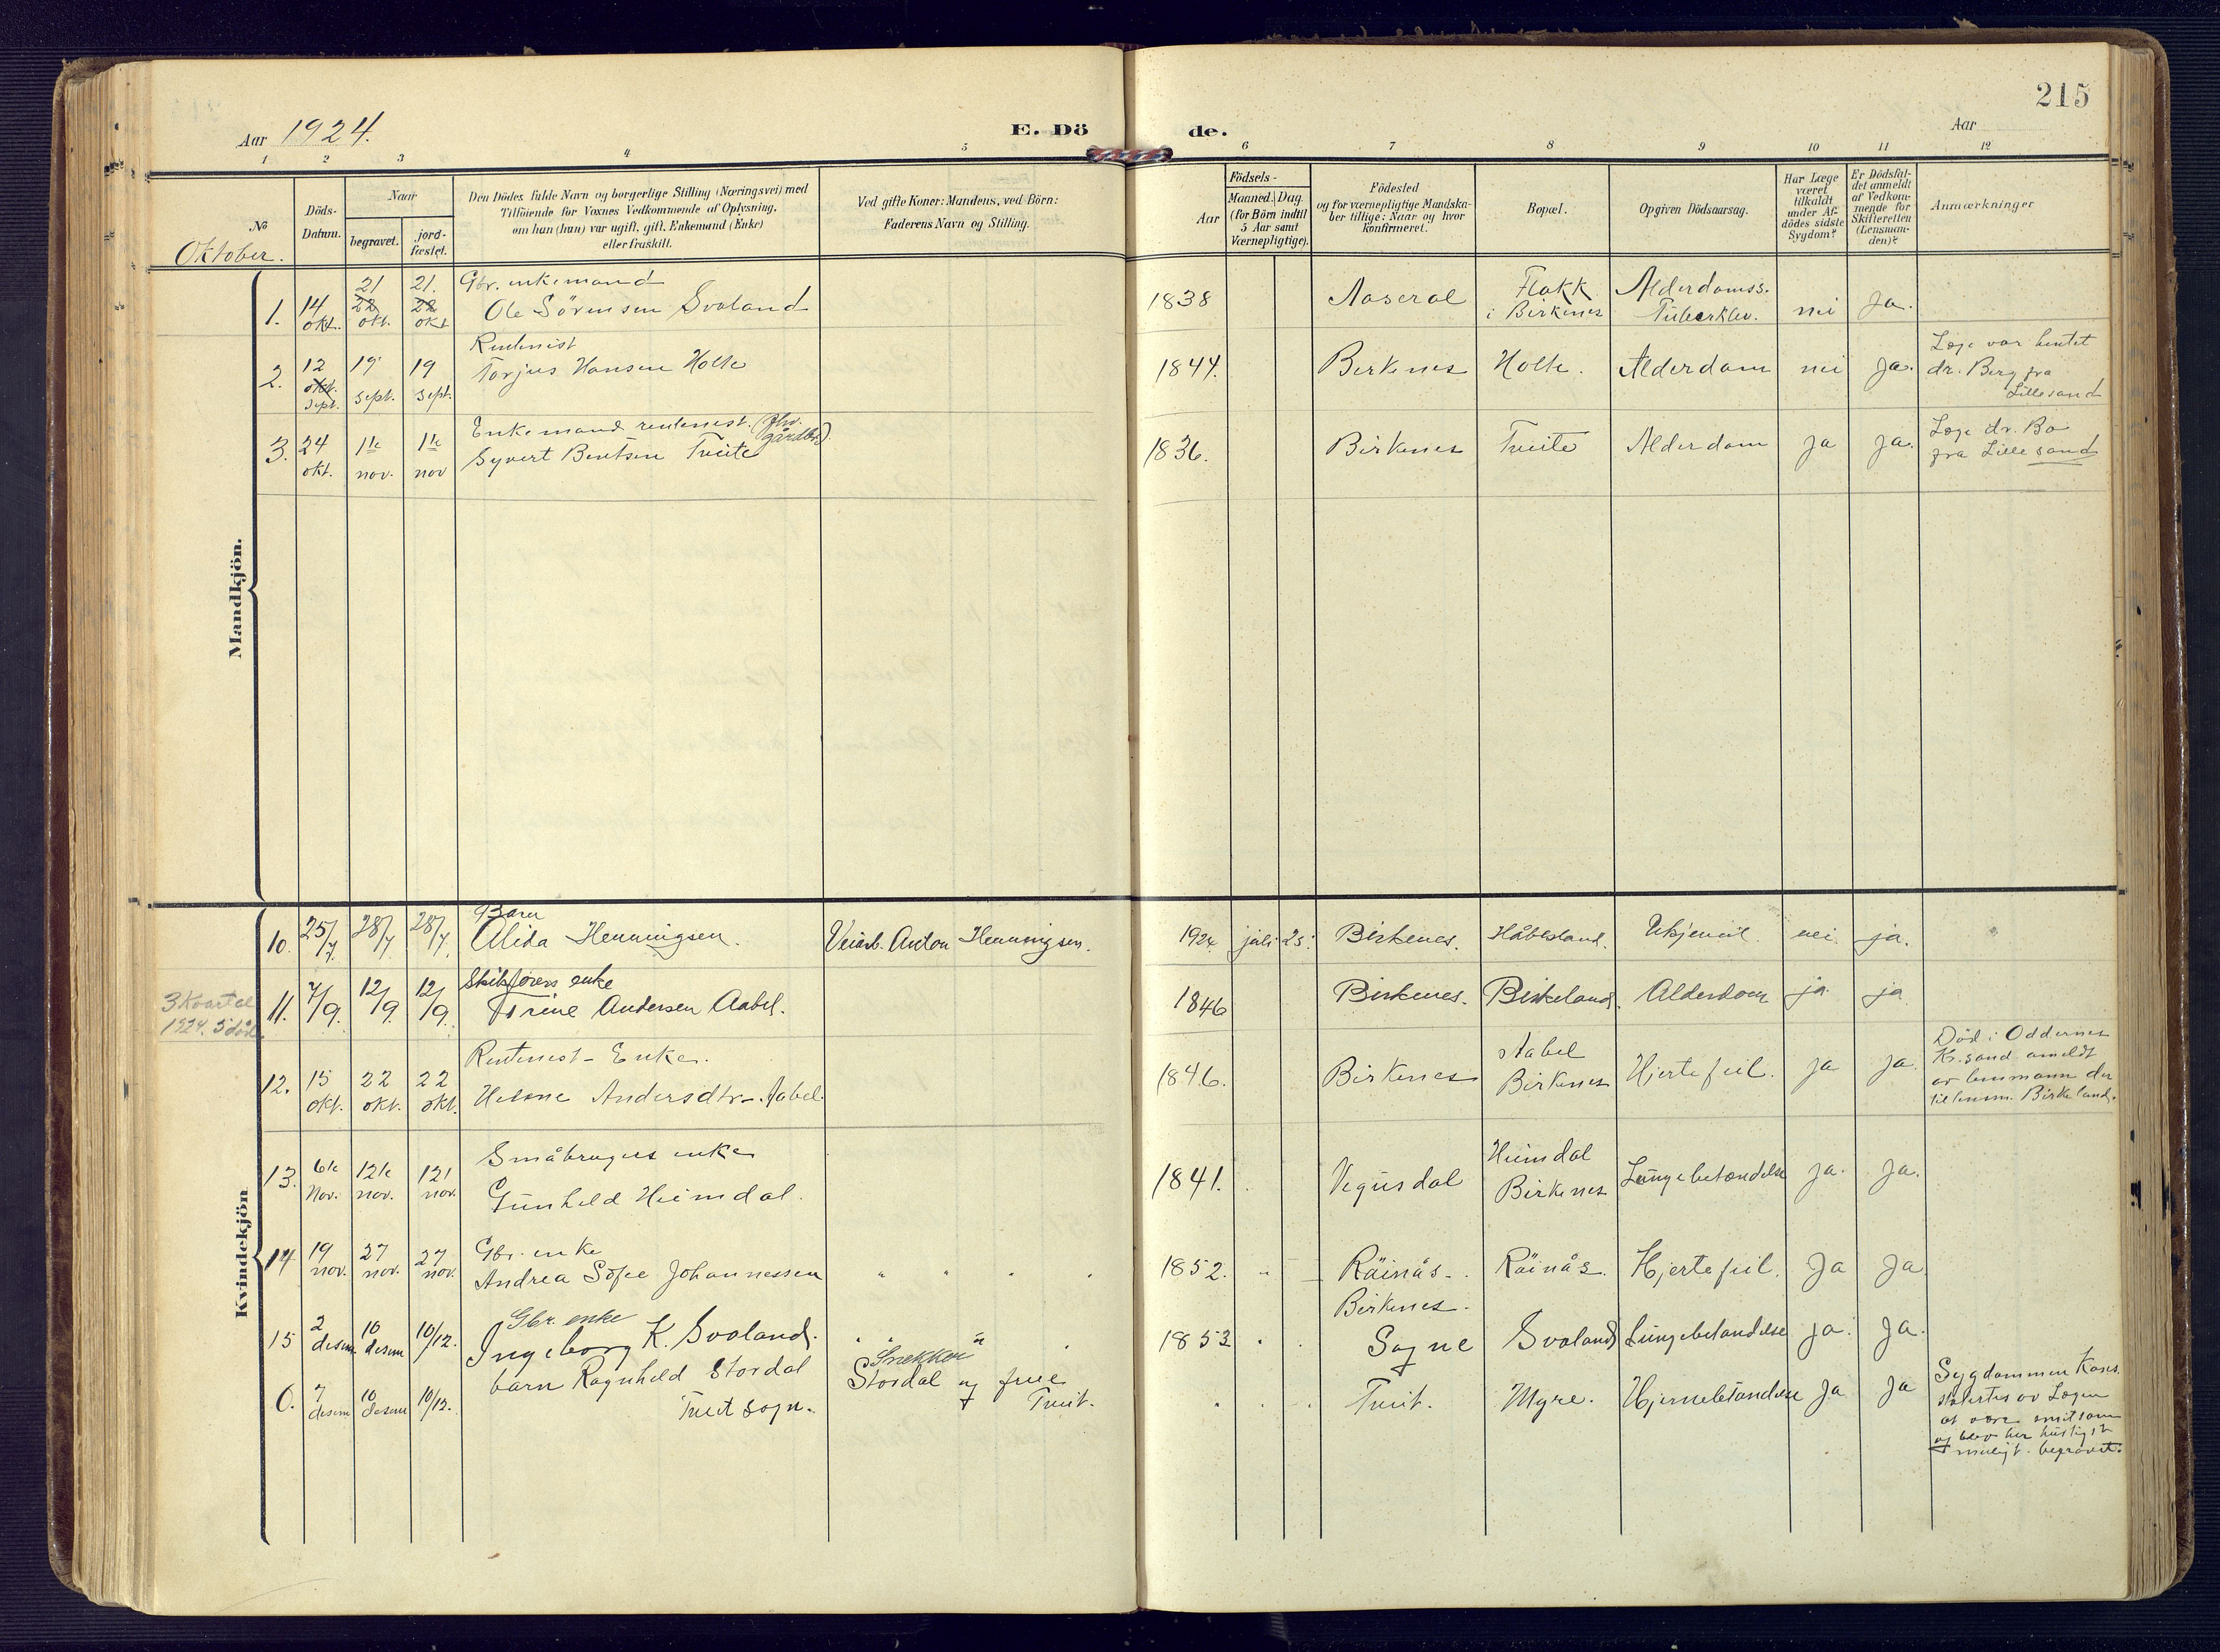 215
Aar 1924.
E. Dö
de.
Aar
1 2 3 4 5 6 7 8 9 10 11 12
№
Oktober.
Döds-
Datum.
Naar
begravet.
jord-
fæstet.
Den Dödes fulde Navn og borgerlige Stilling (Næringsvei) med
Tilföiende for Voxnes Vedkommende af Oplysning,
om han (hun) var ugift, gift, Enkemand (Enke)
eller fraskilt.
Ved gifte Koner: Mandens, ved Börn:
Faderens Navn og Stilling.
Födsels-
Aar
Maaned. Dag.
(for Börn indtil
5 Aar samt
Værnepligtige).
Födested
og for værnepligtige Mandska-
ber tillige: Naar og hvor
konfirmeret.
Bopæl.
Opgiven Dödsaarsag.
Har Læge
været
tilkaldt
under Af-
dödes sidste
Sygdom?
Er Dödsfal-
det anmeldt
af Vedkom-
mende for
Skifteretten
(Lensman-
den)?
Anmærkninger
Mandkjön.
1. 14 okt. 21 22 okt. 21. 22 okt
Gbr. enkemand
Ole Sørensen Svaland
1838 Aaseral Flakk i Birkenes Alderdomss. Tuberklev. nei Ja.
2. 12 okt. sept. 19 sept. 19 sept.
Rentenist
Torjus Hansen Holte
1844. Birkenes Holte. Alderdom nei Ja.
Læge var hentet
dr. Berg fra
Lillesand
3. 24 okt. 1te nov. 1te nov
Enkemand rentenist. (fhv. gårdbr.)
Syvert Bentsen Tveite
1836. Birkenes Tveite Alderdom ja ja.
Læge dr. Bo
fra Lillesand
Kvindekjön
10. 25/7. 28/7 28/7.
Barn
Alida Henningsen.
Veiarb. Anton Henningsen.
1924 juli 25. Birkenes. Håbbesland. Ukjenil nei ja.
3 Kvartal
1924. 5 död
11. 7/9. 12/9 12/9.
Skibsförers enke
Trine Andersen Aabel.
1846 Birkenes. Birkeland. Alderdom ja ja
12. 15 okt. 22 okt. 22 okt.
Rentenist - Enke.
Helene Andersdtr. Aabel.
1846. Birkenes Aabel Birkenes Hjertefeil. ja ja.
Död i Oddernes
Kr.sand ameldt
av lensmann der
til lensm. Birkeland.
13. 6te Nov. 12te nov. 12t nov.
Småbrugers enke
Gunhild Heimdal.
1841. Vegusdal Heimdal Birkenes Lungebetændelse ja. ja.
14 19 nov. 27 nov. 27 nov.
Gbr. enke
Andrea Sofie Johannessen
1852. Räinås. Birkenes. Räinås. Hjertefeil. Ja Ja.
15 2 desem 10 desem 10/12.
Gbr. enke
Ingeborg K. Svaland.
1853 Sogne Svaland Lungebetandelse ja. Ja.
0. 7 desem 10 desem 10/12.
barn Ragnhild Stordal
Tveit sogn.
Snekker
Stordal og frue
Tveit.
Tveit. Myre. Hjernebetandelse Ja Ja
Sygdommen Kons
statertes av Lægen
at være smitsom
og blev her hurtigst
muligt begravet.